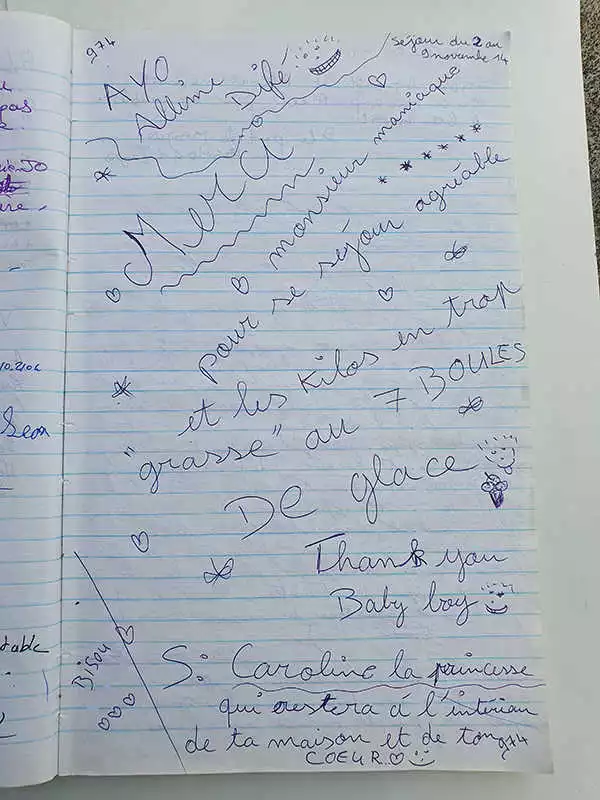 974
séjour du 2 au
9 novembre 14
AYO
Allumé Difé
Merci
monsieur maniaque
pour se sejour agréable
et les kilos en trop
"grasse" au 7 BOULES
De glace
Thank you
Baby boy
Bisou
S: Caroline la princesse
qui restera à l'interieur
de ta maison et de ton 974
COEUR